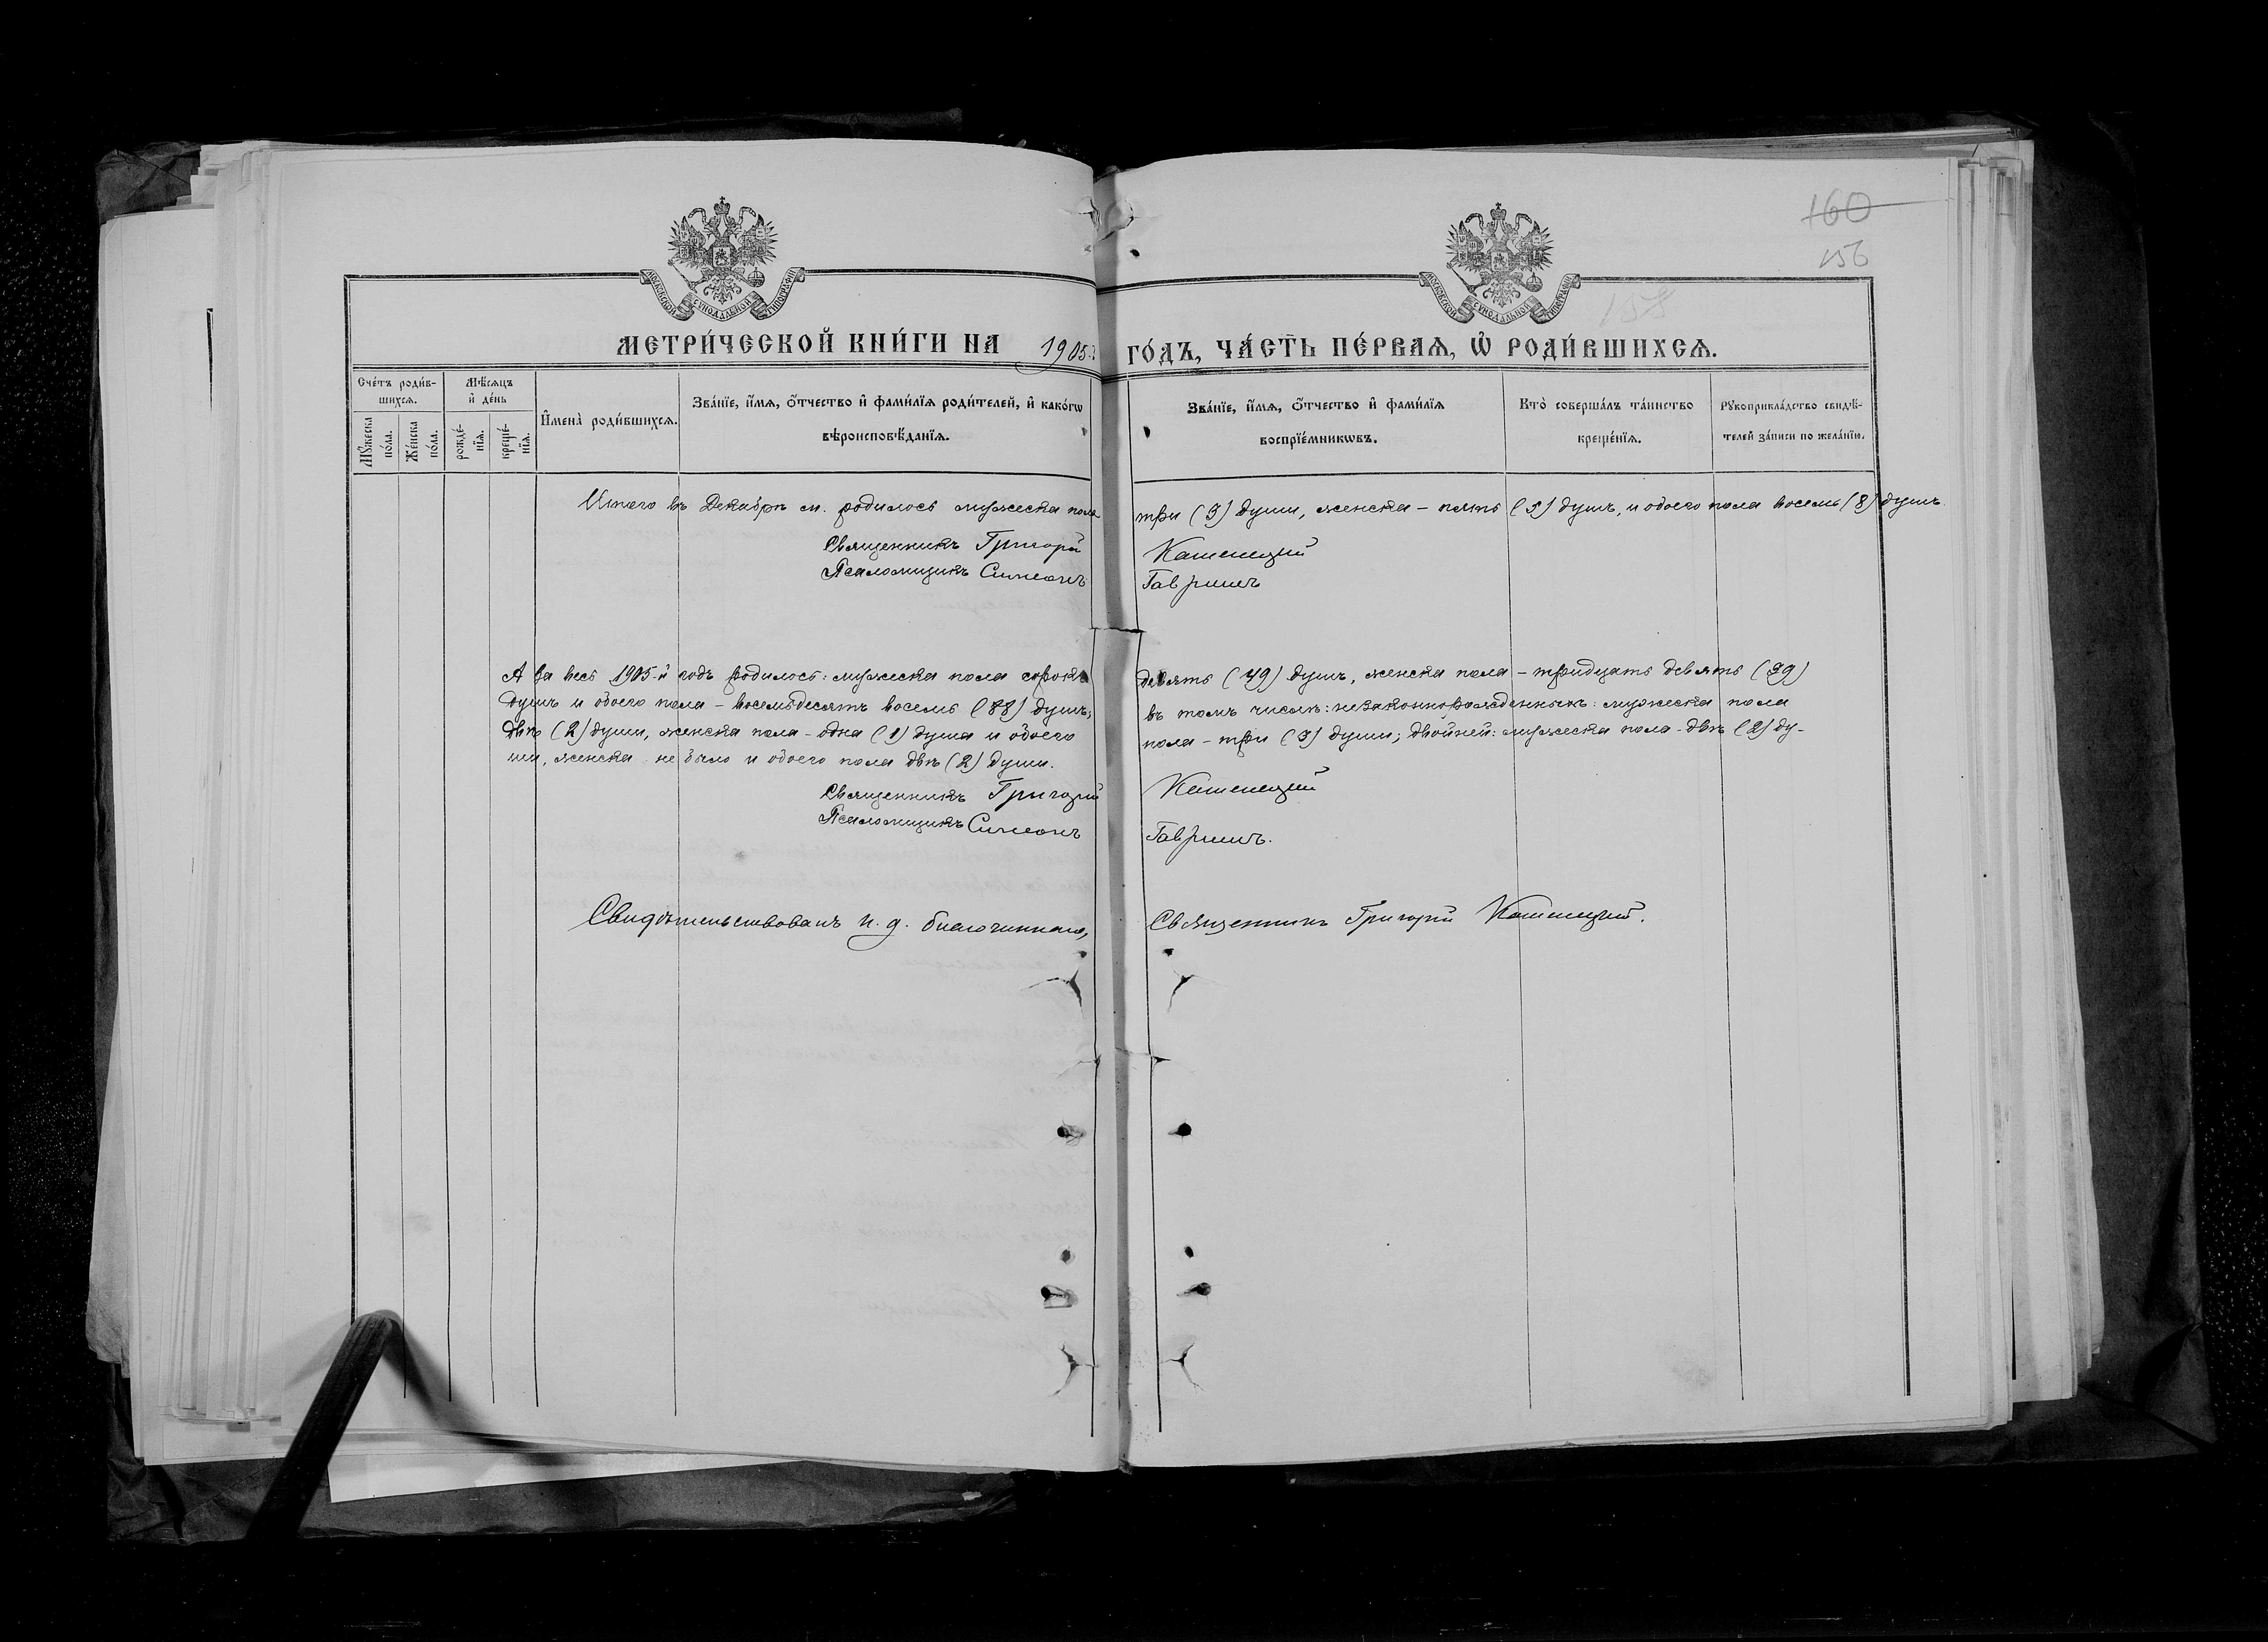 160
156
МОСКОВСКОЙ СѴНОДАЛЬНОЙ ТИПОГРАФІИ
МОСКОВСКОЙ СѴНОДАЛЬНОЙ ТИПОГРАФІИ
МЕТРИ́ЧЕСКОЙ КНИ́ГИ НА 1905-й ГО́ДЪ, ЧА́СТЬ ПЕ́РВАѦ, Ѡ҆ РОДИ́ВШИХСѦ.
Сче́тъ роди́вшихсѧ.
Мꙋ́жеска по́ла.
Же́нска по́ла.
Мѣ́сѧцъ и҆ де́нь
рожде́нїѧ.
креще́нїѧ.
И҆мена̀ роди́вшихсѧ.
Зва́нїе, и҆́мѧ, ѻ҆́тчество и҆ фами́лїѧ роди́телей, и҆ како́гѡ вѣроисповѣ́данїѧ.
Зва́нїе, и҆́мѧ, ѻ҆́тчество и҆ фами́лїѧ воспрїе́мникѡвъ.
Кто̀ соверша́лъ та́инство креще́нїѧ.
Рꙋкоприкла́дство свидѣ́телей за́писи по жела́нїю.
Итого въ Декабрѣ м. родилось мужеска пола три (3) души, женска – пять (5) душъ, и обоего пола восемь (8) душъ
Священникъ Григорій Каменецкій
Псаломщикъ Симеонъ Гавришъ
А за весь 1905-й годъ родилось: мужеска пола сорокъ девять (49) душъ, женска пола – тридцать девять (39)
душъ и обоего пола – восемьдесятъ восемь (88) душъ; въ томъ числѣ: незаконнорожденныхъ: мужеска пола
двѣ (2) души, женска пола – одна (1) душа и обоего пола – три (3) души; двойней: мужеска пола – двѣ (2) ду-
ши, женска не было и обоего пола двѣ (2) души.
Священникъ Григорій Каменецкій
Псаломщикъ Симеонъ Гавришъ.
Свидѣтельствовалъ и. д. благочиннаго, Священникъ Григорій Каменецкій.